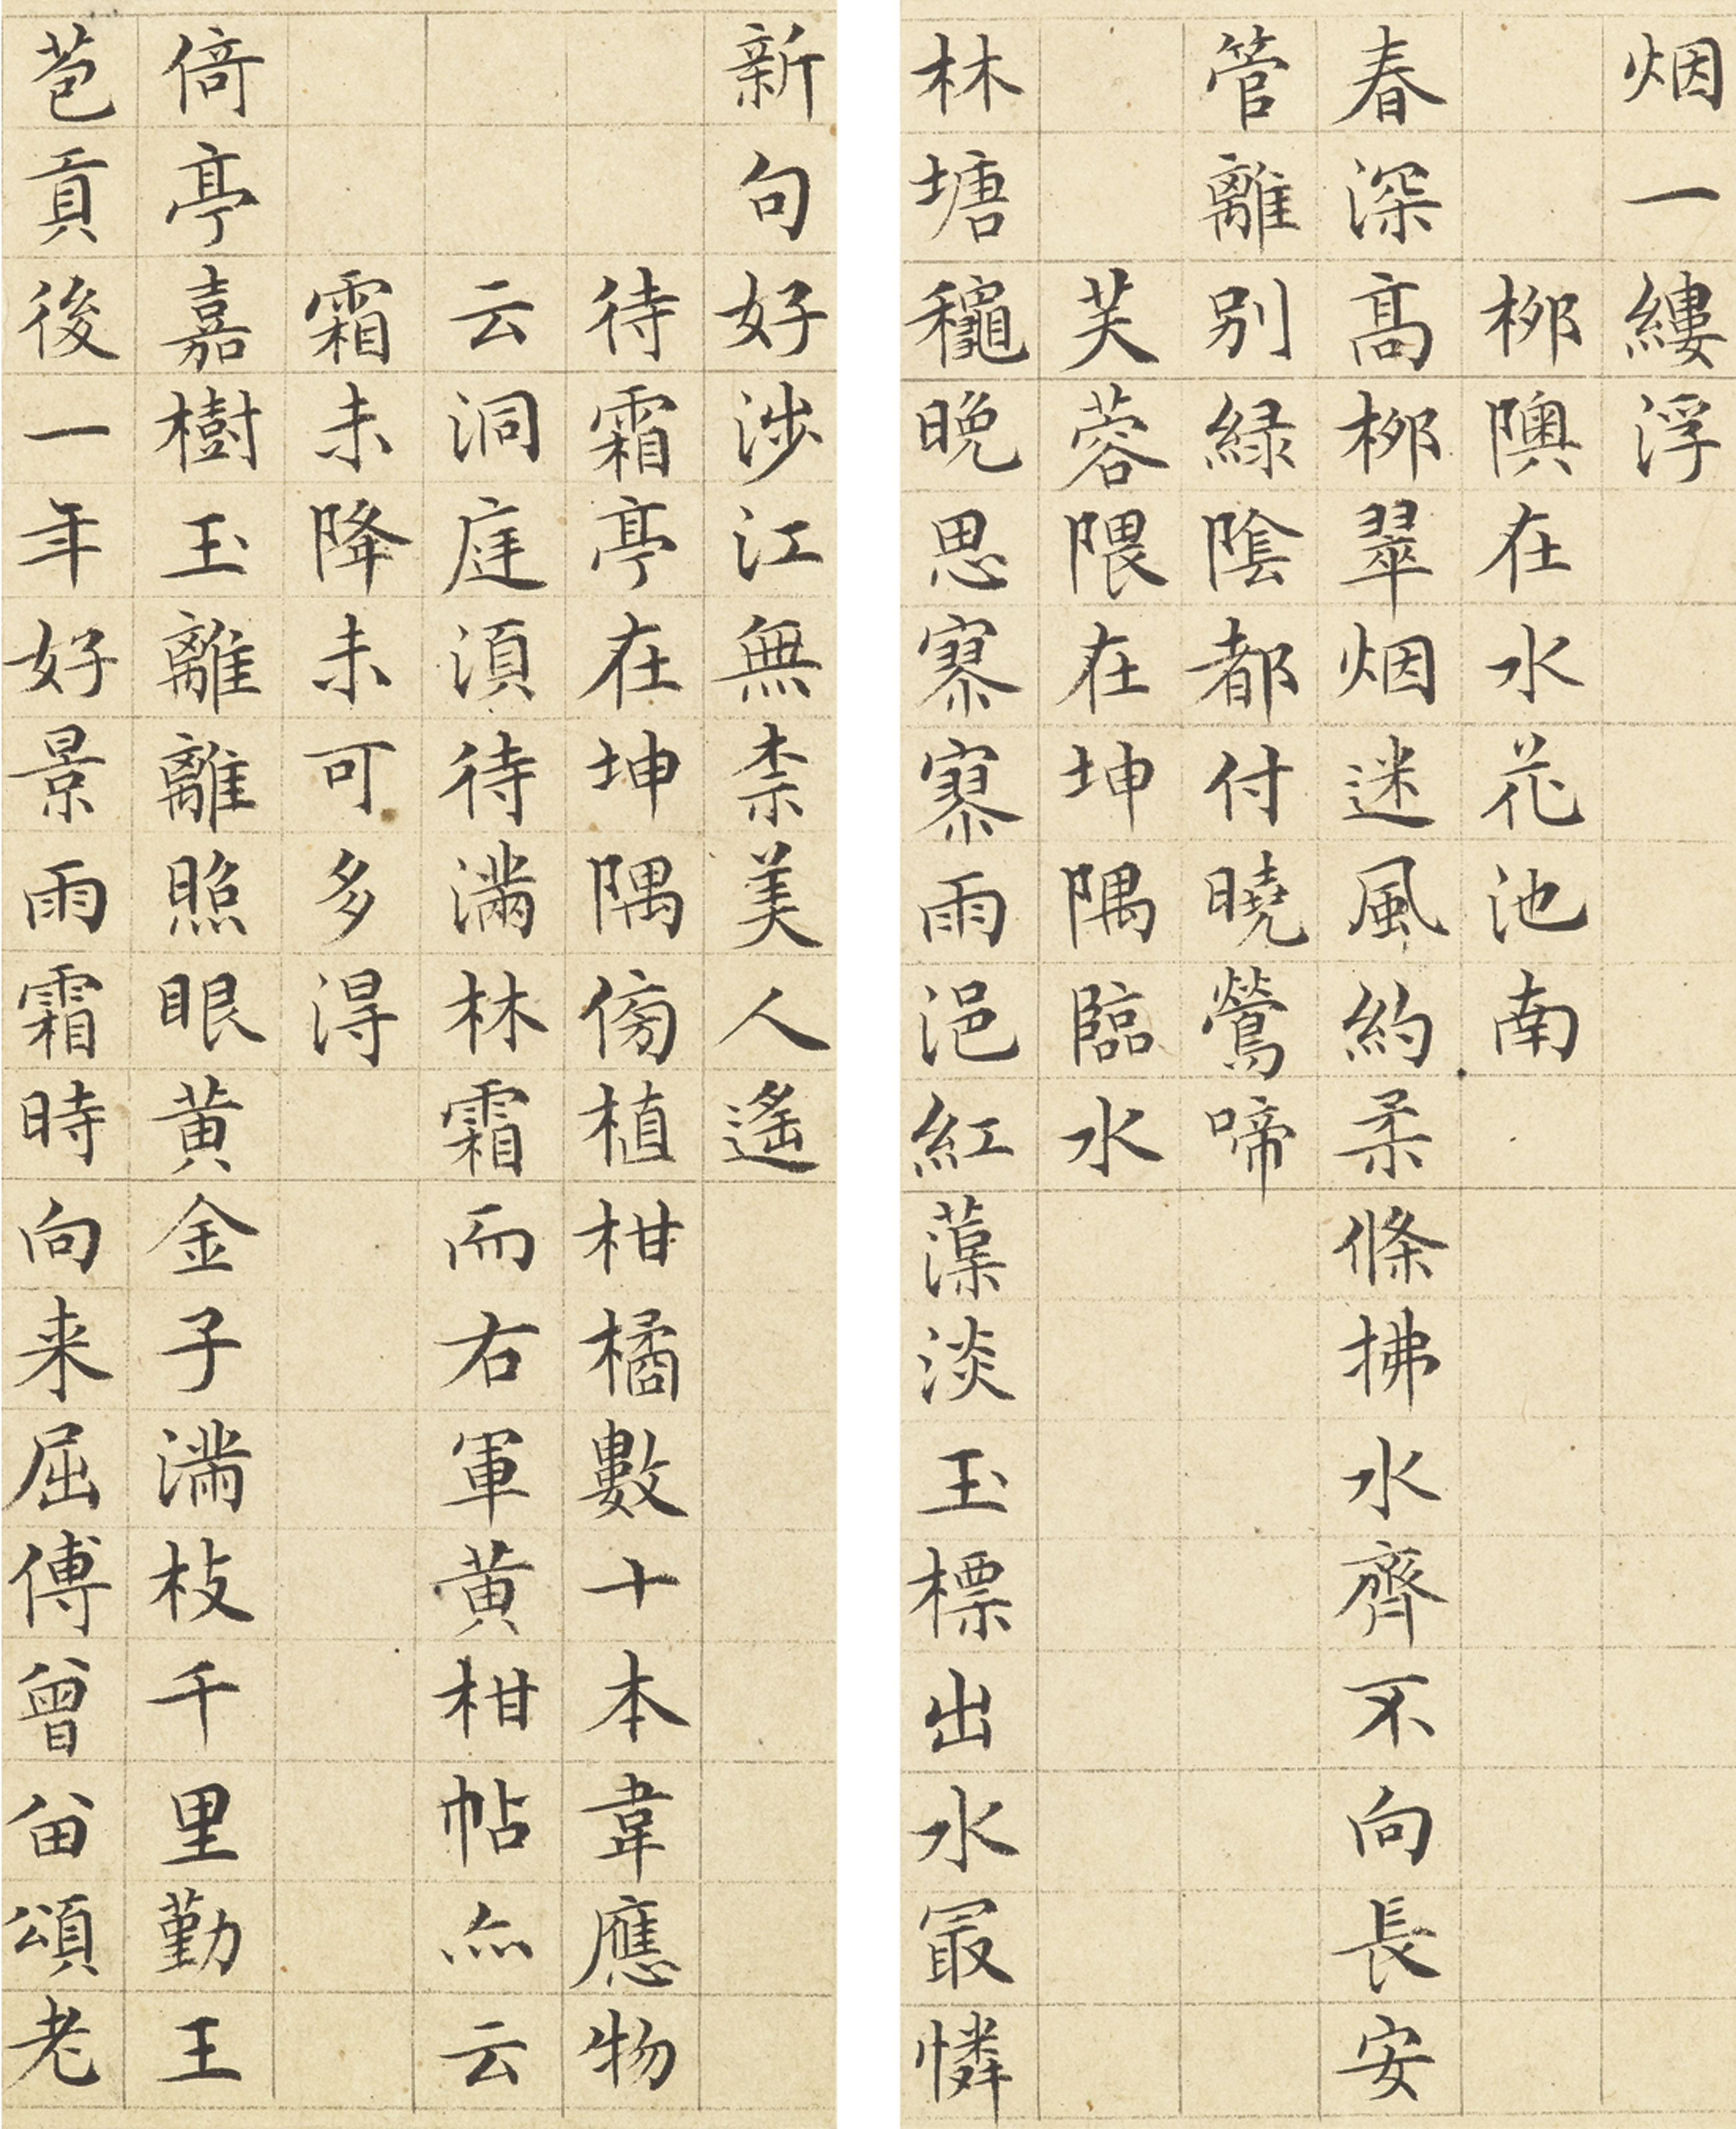 烟一縷浮
桺隩在水花池南
春深髙桺翠烟迷風約柔條拂水齊不向長安
管離別緑陰都付曉鶯啼
芙蓉隈在坤隅臨水
林塘龝晚思寥寥雨浥紅蕖淡玉標出水最憐
新句好涉江無柰美人遙
待霜亭在坤隅傍植柑橘數十本韋應物
云洞庭湏待滿林霜而右軍黄柑帖亦云
霜未降未可多得
倚亭嘉樹玉離離照眼黄金子滿枝千里勤王
苞貢後一年好景雨霜時向来屈傅曽留頌老